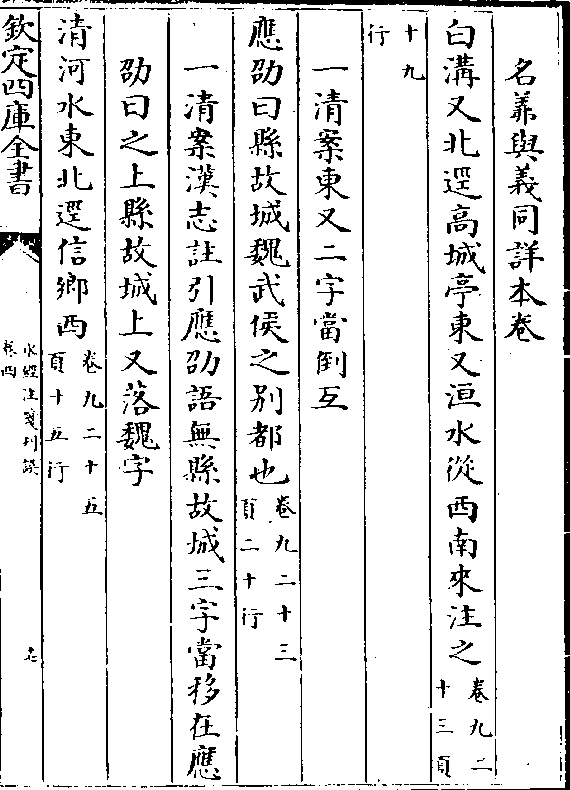 名葊與義同詳本卷
白溝又北逕高城亭東又洹水從西南來注之卷九二十三頁
十九行
一清案東又二字當倒互
應劭曰縣故城魏武侯之别都也卷九二十三頁二十行
一清案漢志註引應劭語無縣故城三字當移在應
劭曰之上縣故城上又落魏字
清河水東北逕信鄉西卷九二十五頁十五行
欽定四庫全書
水經注箋刋誤
卷四